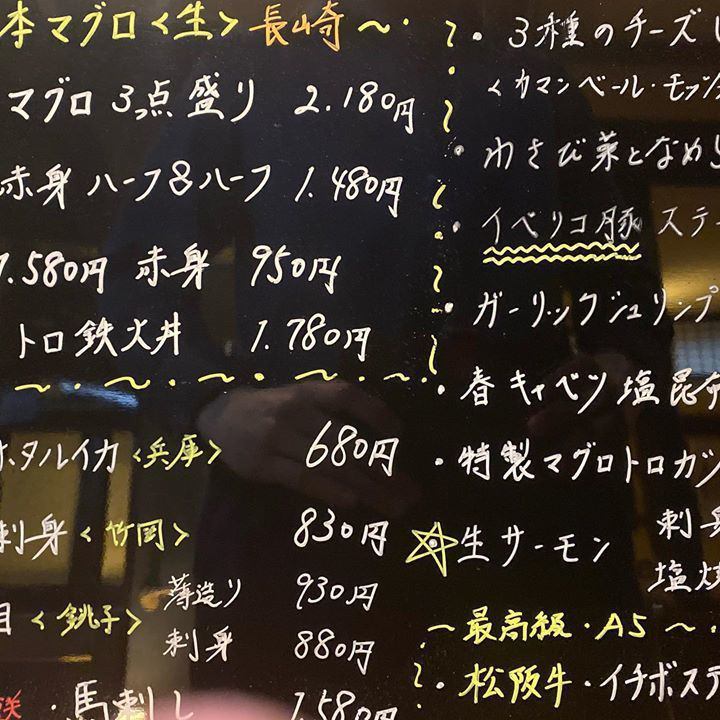 本マグロ<生>長崎〜・
マグロ3点盛り 2.180円
赤身ハーフ&ハーフ 1.480円
1.580円 赤身 950円
トロ鉄火丼 1.780円
〜・〜・〜・〜・〜・
ホタルイカ<兵庫> 680円
刺身<竹岡> 830円
目<銚子> 薄造り 930円
刺身 880円
・馬刺し 1.580円
・3種のチーズ
<カマンベール・モッツ
・わさび菜となめ
・イベリコ豚ステー
・ガーリックシュリンプ
・春キャベツ塩昆布
・特製マグロトロカツ
☆生サーモン 刺身
塩焼
〜最高級・A5〜・
・松阪牛・イチボステ